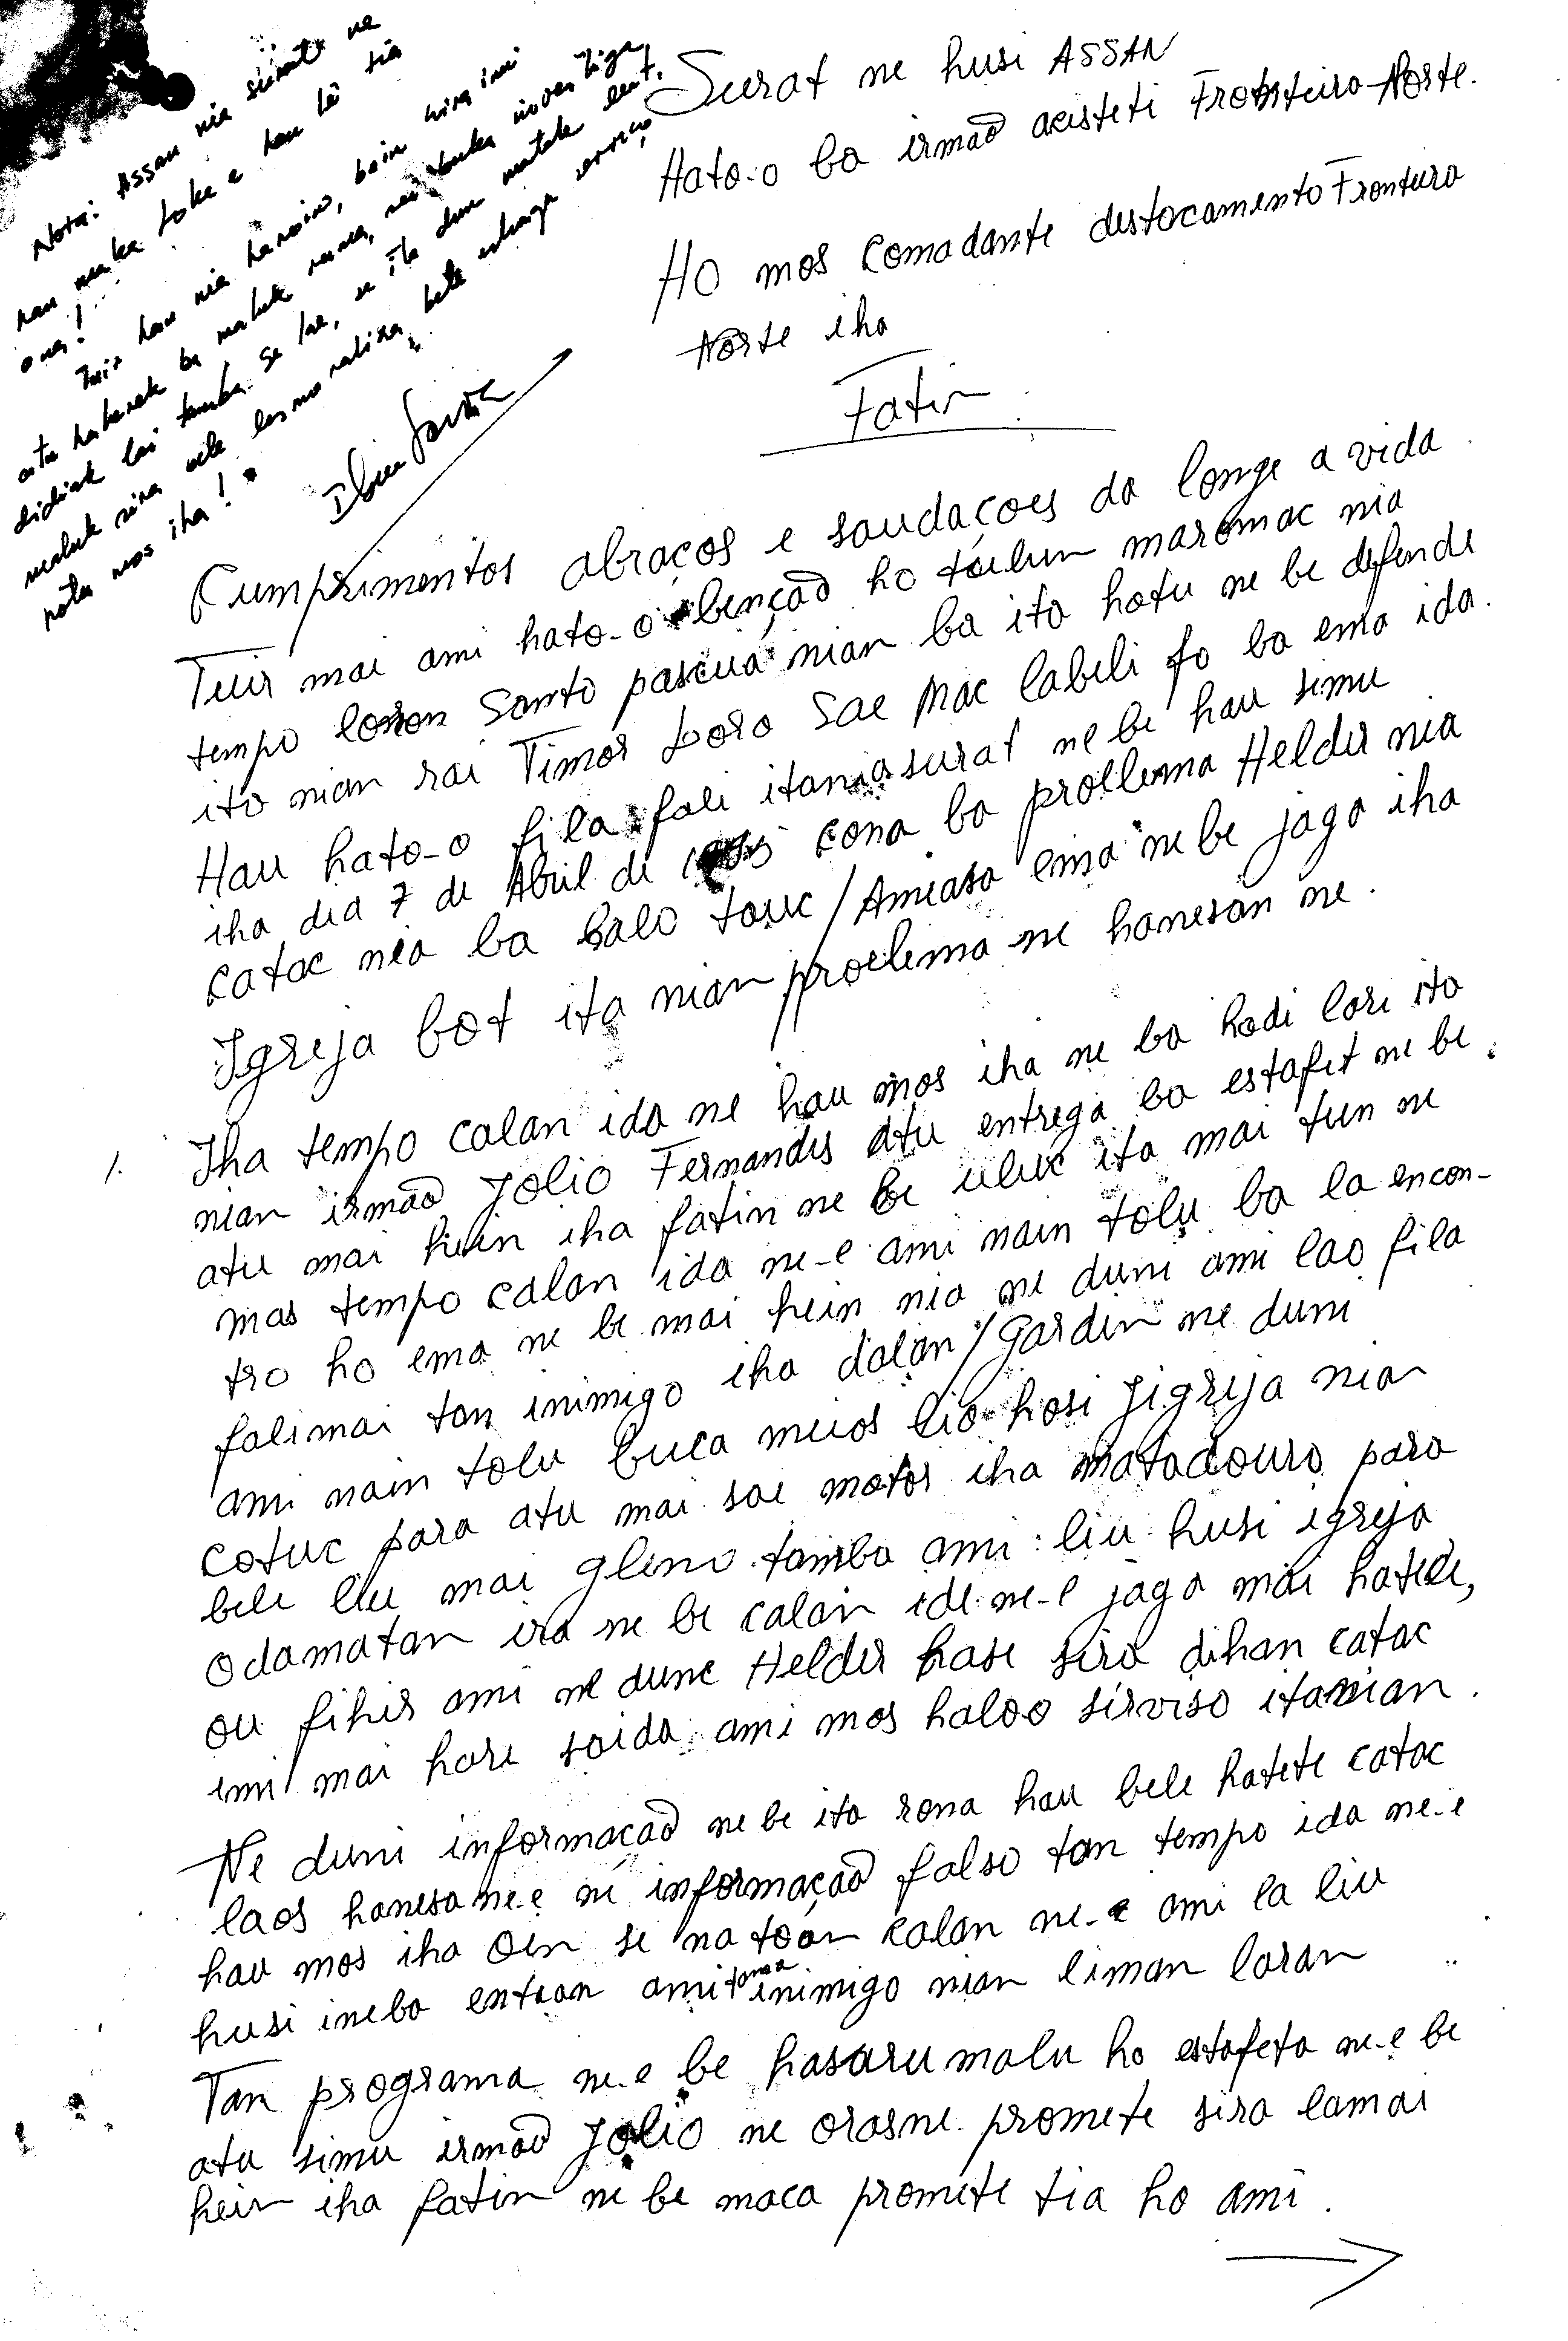 Nota: Assan nia surat ne
hau maka loke e hau lê tia
ona!
Tuir hau nia hanoin, bain hira imi
atu haberak ba maluk ruma, rai buka investiga
didiak lai tamba se lae, se ita dun matak deit,
maluk sira sele desmoraliza, bele estraga serviço
nota mos iha!
Surat ne husi ASSAN
Hato-o ba irmaõ acisteti Fronteiro-Norte.
HO mos Comadante destacamento Frontura
Norte iha
Fatin
Cumprimentos abraços e saudaçoes da longe a vida
Tuir mai ami hato-o bençaõ ho tulun maromac nia
tempo loron Santo pascua nian ba ita hotu ne be defende
ita nian rai Timor Loro Sae Mac labeli fo ba ema ida.
Hau hato-o fila fali itania surat ne be hau simu
iha dia 7 de Abril de 1995 cona ba problema Helder nia
catac nia ba halo tauc / Amiasa ema ne be jaga iha
Igreja bot ita nian problema ne hanesan ne.
1. Iha tempo calan ida ne hau mos iha ne ba hodi lori ita
nian irmaõ Jolio Fernandes atu entrega ba estafet ne be
atu mai hein iha fatin ne be uluc ita mai tun ne
mas tempo calan ida ne-e ami nain tolu ba la encon-
tro ho ema ne be mai hein nia ne duni ami lao fila
falimai tan inimigo iha dalan / Gardin ne duni
ami nain tolu buca meios lio hosi Jigreja nian
cotuc para atu mai sae motor iha matadouro para
bele liu mai gleno tamba ami liu husi igreja
odamatan ira ne be calan ide ne-e jaga mai hatete,
ou fihir ami ne dune Helder hase sira dihan catac
imi mai hare saida ami mos haloo serviso itanian.
Ne duni informaçaõ ne be ita rona hau bele hatete catac
laos hanesa ne-e ne informaçaõ falso tan tempo ida ne-e
hau mos iha Oin se na toon calan ne-e ami la liu
husi ineba entaon ami tama inimigo nian liman laran
Tan programa ne-e be hasaru malu ho estafeta ne-e be
atu simu irmaõ Jolio ne orasne promete sira lamai
hein iha fatin ne be maca promete tia ho ami.